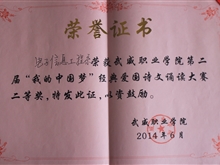 荣誉证书
荣获武威职业学院第二
届“我的中国梦”经典爱国诗文诵读大赛
二等奖，特发此证，以资鼓励。
武威职业学院
2014年6月